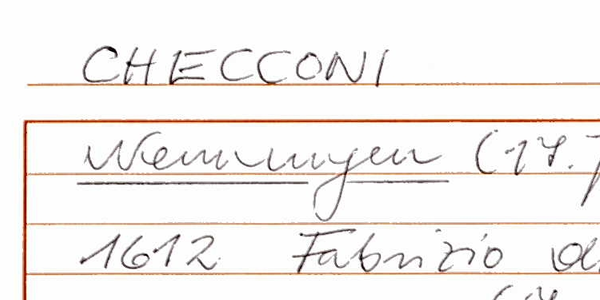 CHECCONI
Wemmingen (17.
1612 Fabrizio